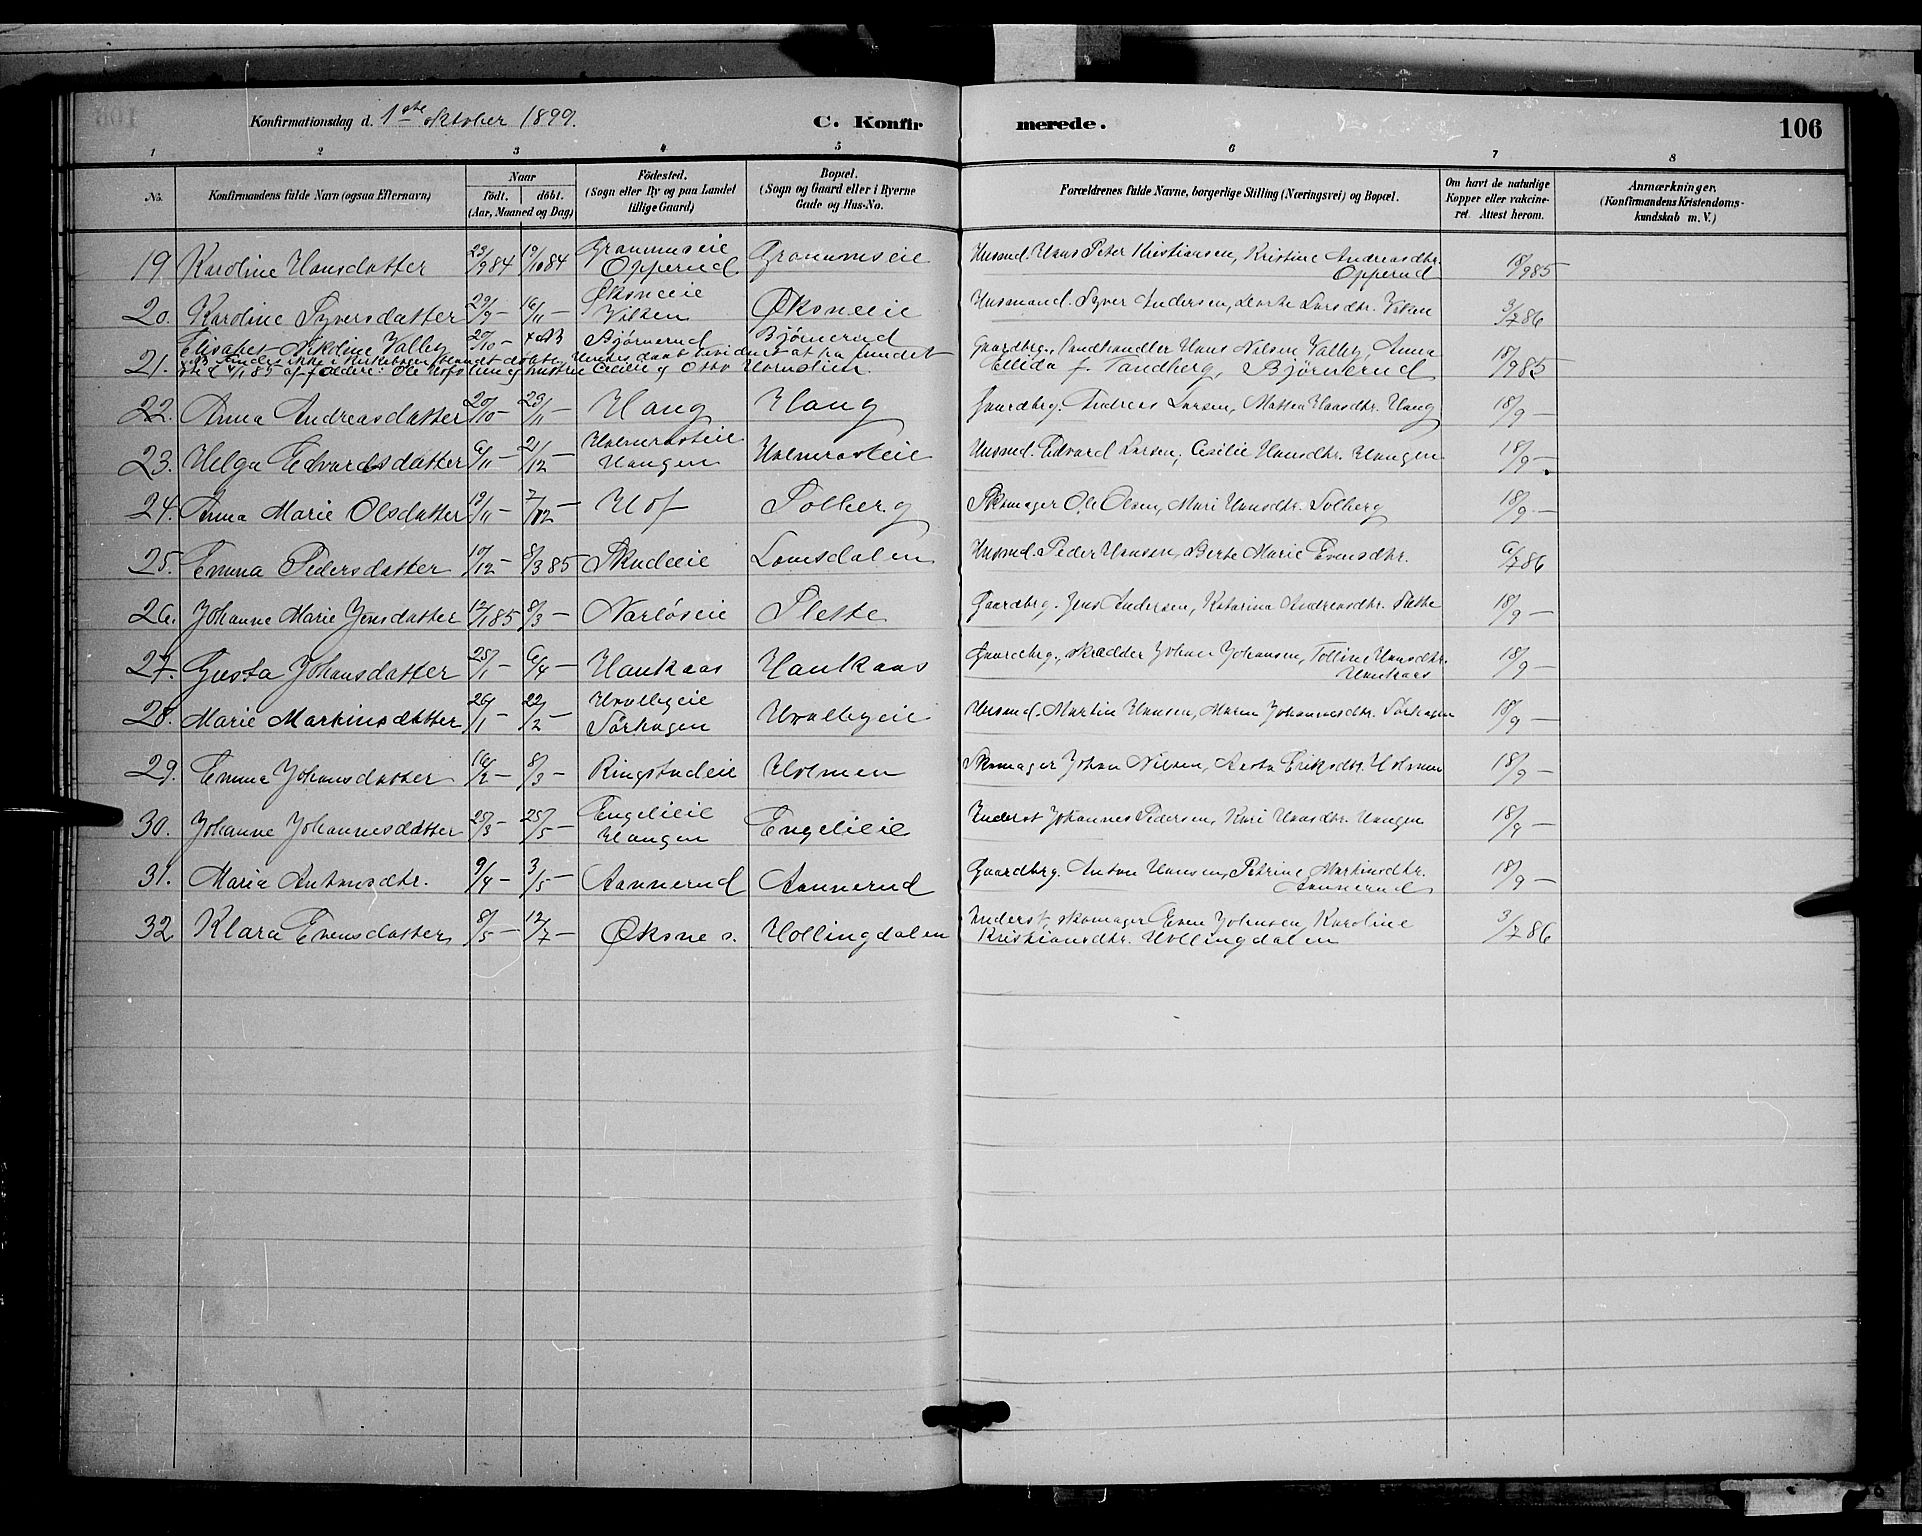 Konfirmationsdag d. 1ste oktober 1899. C. Konfirmerede. 106
1 2 3 4 5 6 7 8
No. Konfirmandens fulde Navn (ogsaa Efternavn) Naar födt. döbt. (Aar, Maaned og Dag) Födested. (Sogn eller By og paa Landet tillige Gaard) Bopæl. (Sogn og Gaard eller i Byerne Gade og Hus-No. Forældrenes fulde Navne, borgerlige Stilling (Næringsvei) og Bopæl. Om havt de naturlige Kopper eller vakcineret. Attest herom. Anmærkninger. (Konfirmandens Kristendomskundskab m. V.)
19 Karoline Hansdatter 23/9 84 19/10 84 Granumseie Opperud Granumseie Husmd. Hans Peter Kristiansen, Kristine Andreasdtr. Opperud 18/9 85
20. Karoline Syversdatter 29/9 – 16/11 – Øksneeie Vikken Øksneeie Husmand. Syver Andersen, Dorte Larsdtr. Viken 3/7 86
21. Elisabet Nikoline Valley 20/10 – Bjørnerud Bjørnerud Gaardbrg., Landhandler Hans Nilsen Valley, Anna Ellida f. Tandberg, Bjørnerud 18/9 85
22. Anna Andreasdatter 20/10 – 23/11 – Haug Haug Gaardbrg. Andreas Larsen, Mathea Hansdtr. Haug 18/9 –
23. Helga Edvardsdatter 6/11 – 21/12 – Holmraseie Haugen Holmraseie Husmd. Edvard Larsen, Cecilie Hansdtr. Haugen 18/9 –
24. Anna Marie Olsdatter 19/11 – 7/12 – Hof Solberg Skomager Ole Olsen, Mari Hansdtr. Solberg 18/9 –
25. Emma Pedersdatter 10/12 – 8/3 85 Skudeie Lomsdalen Husmd. Peder Hansen, Berte Marie Evensdtr. 6/7 86
26. Johanne Marie Jensdatter 12/1 85 8/3 – Narløseie Slette Gaardbrg. Jens Andersen, Katarina Andreasdtr. Slette 18/9 –
27. Gusta Johansdatter 25/1 – 6/4 – Haukaas Haukaas Gaardbrg., skrædder Johan Johansen, Tolline Hansdtr. Haukaas 18/9 –
28. Marie Martinsdatter 26/1 – 22/2 – Hvalbyeie Sørhagen Hvalbyeie Husmd. Martin Hansen, Maren Johannesdtr. Sørhagen 18/9 –
29. Emma Johansdatter 16/2 – 8/3 – Ringstadeie Holmen Skomager Johan Nilsen, Aasta Eriksdtr. Holmen 18/9 –
30. Johanne Johannesdatter 25/3 – 25/5 – Engelieie Haugen Engelieie Inderst Johannes Pedersen, Kari Hansdtr. Haugen 18/9 –
31. Maria Antonsdtr. 9/4 – 3/5 – Aannerud Aannerud Gaardbrg. Anton Hansen, Petrine Martinsdtr. Aannerud 18/9 –
32 Klara Evensdatter 8/5 – 12/7 – Øksne s. Hollingdalen Inderst, skomager Even Johnsen, Karoline Kristiansdtr. Hollingdalen 3/7 86